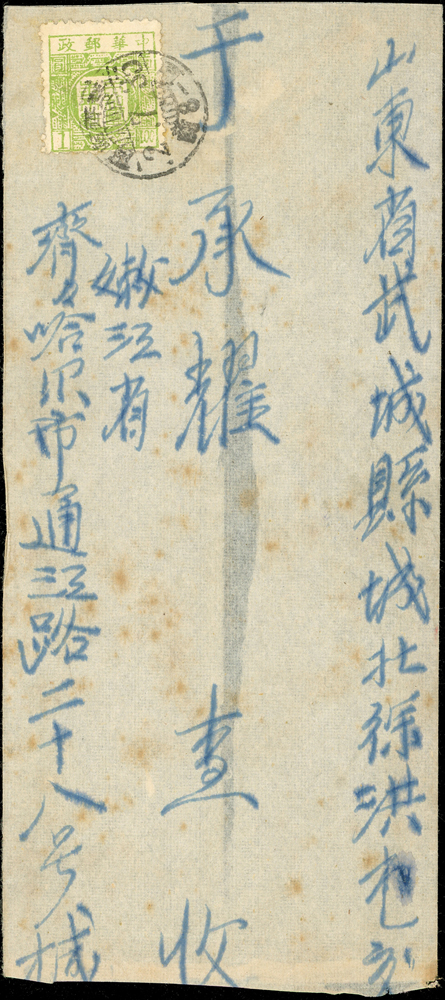 山東省武城縣城北徐洪
于承耀查收
嫩江省
齊々哈尔市通江路二十八号
中華郵政